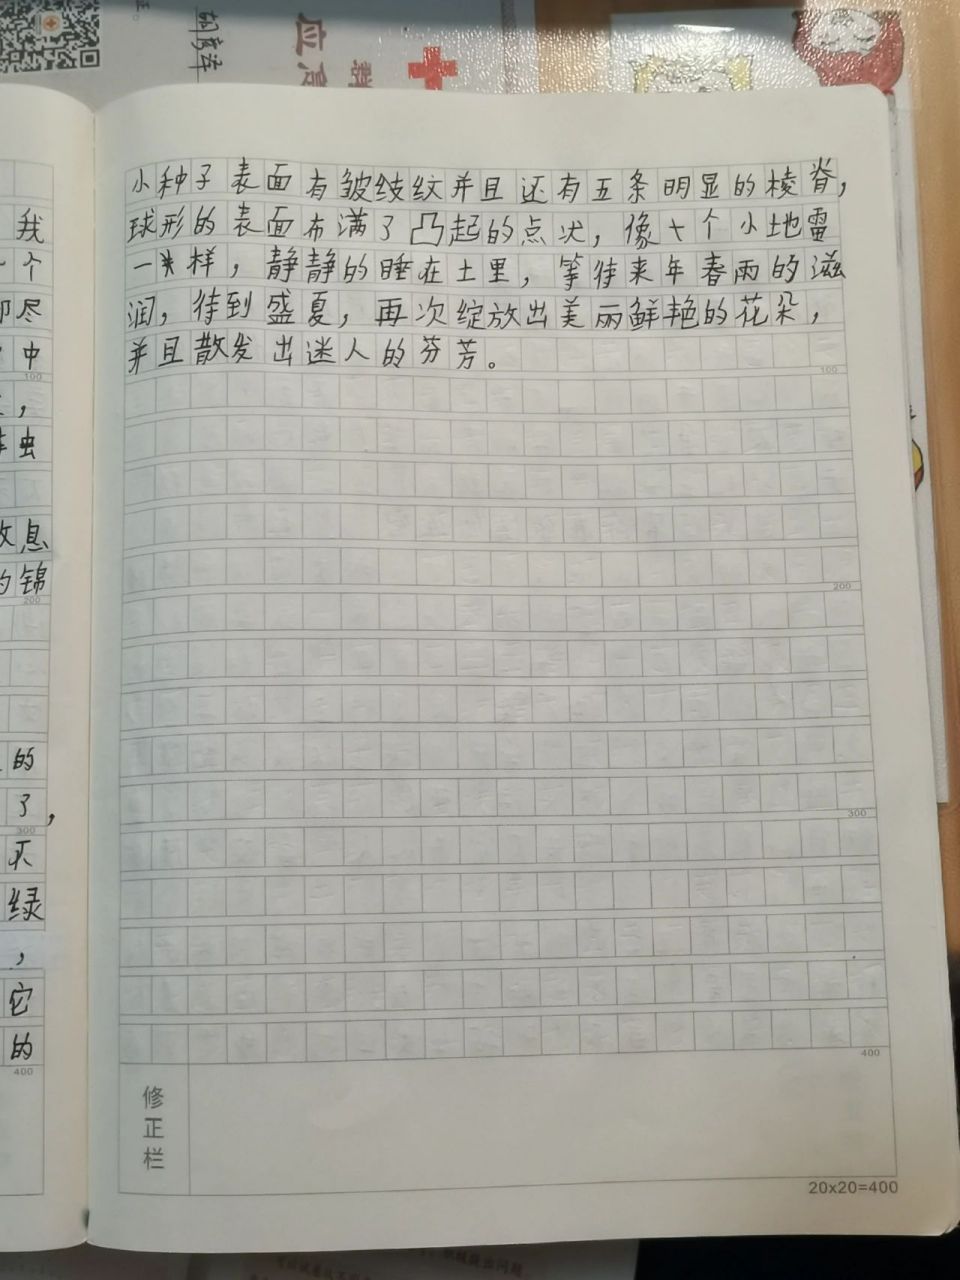 应急
我
个
却尽
中
100
，
虫
息
的锦
200
的
了，
300
不
绿
，
它
的
400
小种子表面有皱纹纹并且还有五条明显的棱脊，
球形的表面布满了凸起的点状，像个小地雷
一样，静静的睡在土里，等待来年春雨的滋
润，待到盛夏，再次绽放出美丽鲜艳的花朵，
并且散发出迷人的芬芳。
100
200
300
400
修正栏
20x20=400